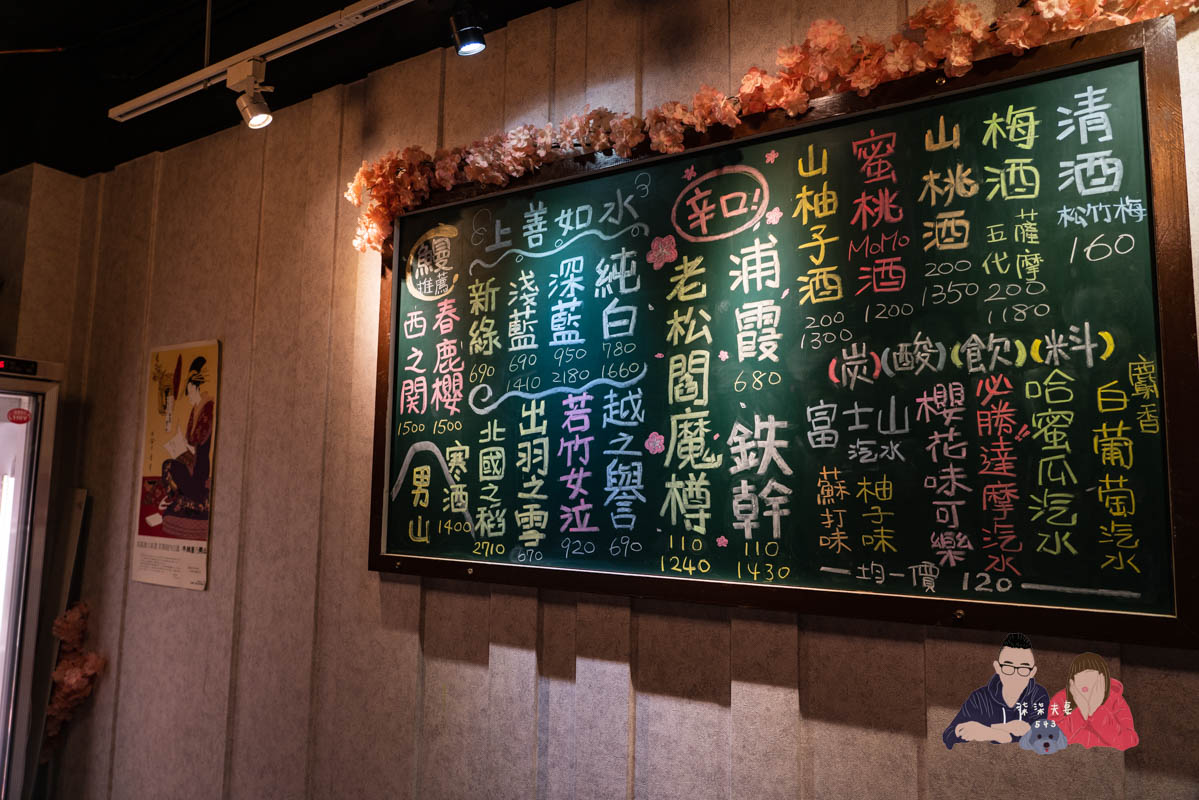 清酒
松竹梅
160
梅酒
五代
薩摩
200
1180
山桃酒
200
1350
蜜桃
MoMo
酒
1200
山柚子酒
200
1300
(炭)(酸)(飲)(料)
麝香
白葡萄汽水
哈蜜瓜汽水
必勝達摩汽水!!
櫻花味可樂
富士山
汽水
柚子味
蘇打味
均一價 120
辛口!
浦霞
680
鉄幹
110
1430
老松閻魔樽
110
1240
上善如水
純白
780
1660
深藍
950
2180
淺藍
690
1410
新綠
690
越之譽
690
若竹女泣
920
出羽之雪
670
北國之稻
2710
鰻
推薦
春鹿櫻
1500
西之関
1500
寒酒
1400
男山
柒柒夫妻
543